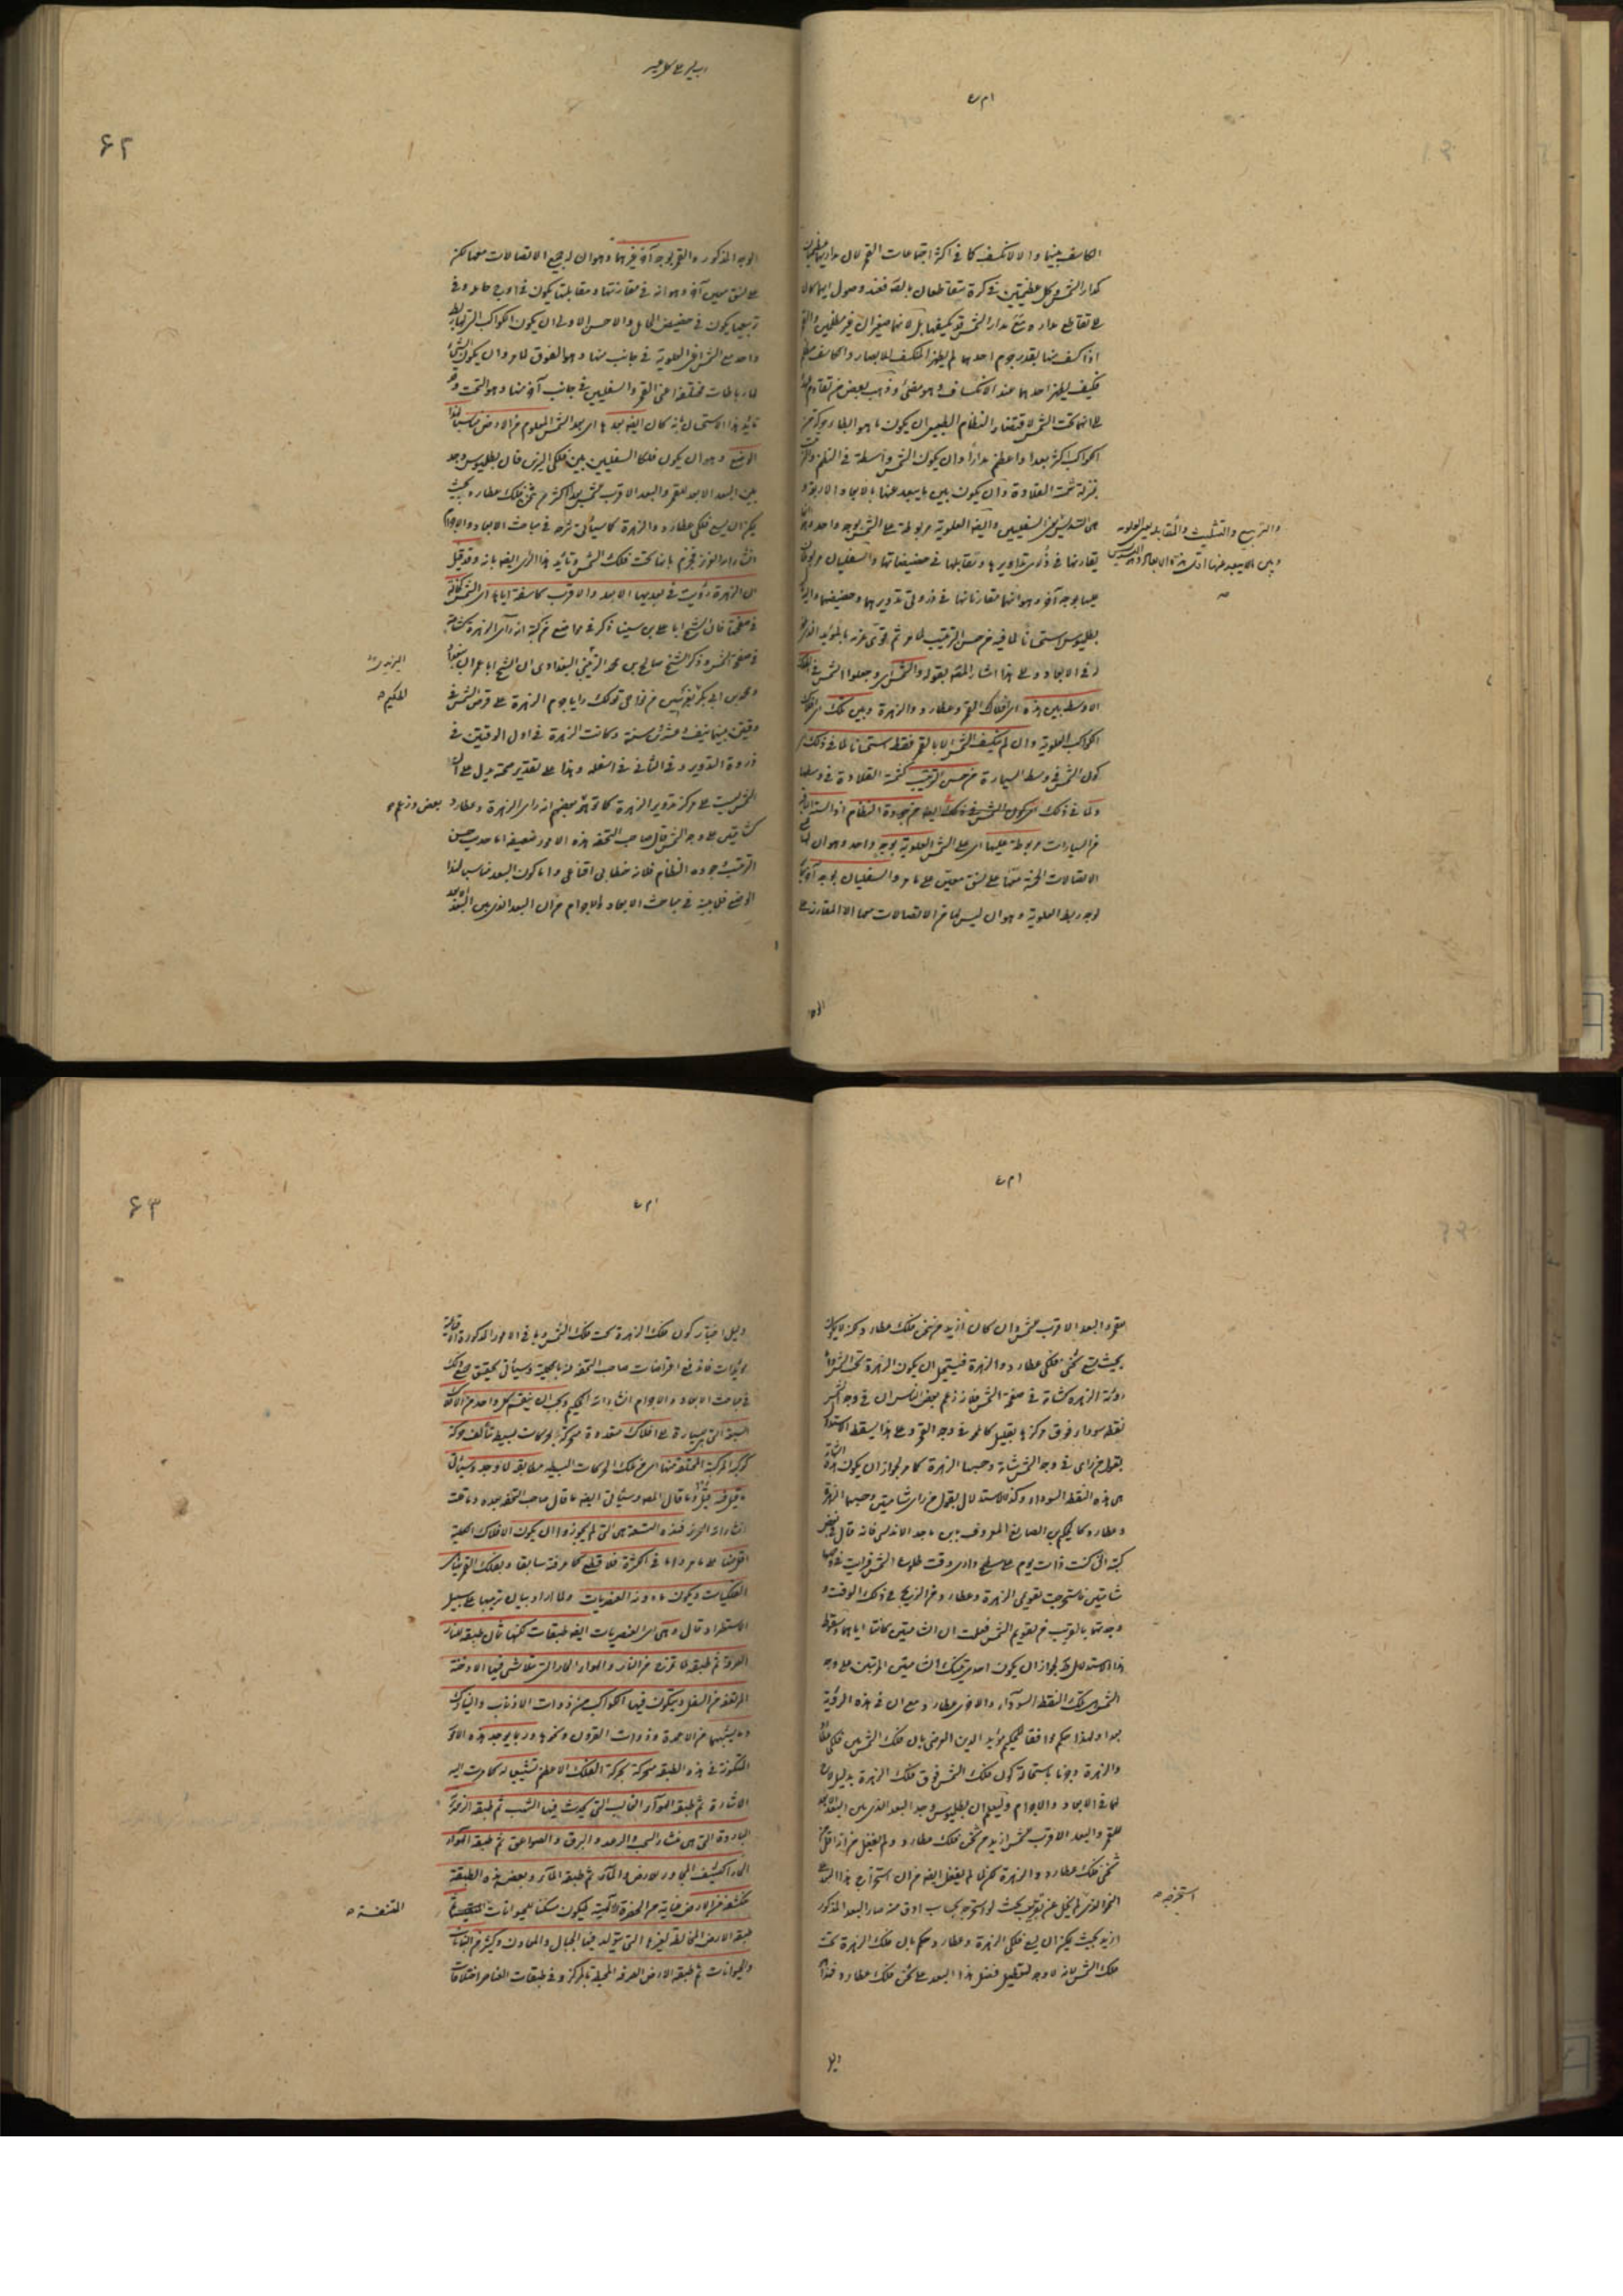 الكاسف بينها والا لانكسف كما في اكثر اجتماعات القمر لان مداريهما
كمدار الشمس وكل عظيمتين في كرة متقاطعان بالضرورة فعند وصول ايهما كان
على تقاطع مداره مع مدار الشمس قد يكسفها بل لانهما صغيران غير مظلمين والقمر
اذا كسف منها بقدر جرم احدهما لم يظهر المنكسف للابصار والكاسف مظلم
فكيف يظهر احدهما عند الانكساف وهو مضئ وذهب بعض من تقادم
على انهما تحت الشمس لاقتضاء النظام الطبيعي ان يكون ما هو
الكواكب اكثر بعدا واعظم مدارا وان يكون الشمس واسطة في النظم
بمنزلة شمسة القلادة وان يكون بين ما يبعد عنها بالابعاد الاربعة و
هي التسديس بين السفليين وايضا العلوية مربوطة على الشمس بوجه واحد
والتربيع والتثليث والمقابلة
يقارنها في ذرى تداويرها وتقابلها في حضيضاتها والسفليان مربوطان
عليها بوجه آخر وهو انهما مقارناتها في ذروتي تدويريهما وحضيضهما
بطليموس استحسانا لما فيه من حسن الترتيب كما مر ثم قوى عزمه بالمؤيد
في الابعاد وعلى هذا اشار المصنف بقوله والشمس اي وجعلوا الشمس في الفلك
الاوسط بين هذه اى افلاك القمر وعطارد والزهرة وبين تلك اى افلاك
الكواكب العلوية وان لم تنكسف الشمس الا بالقمر فقط استحسانا لما في ذلك
كون الشمس في وسط السيارة من حسن الترتيب كشمسة القلادة في وسطها
ولما في ذلك اى كون الشمس في ذلك ايضا من جودة النظام اذ الستة الباقية
من السيارات مربوطة عليها اى على الشمس العلوية بوجه واحد وهو ان لها
الاتصالات الخمسة معها على نسق معين على ما مر والسفليان بوجه آخر
لوجه ربط العلوية وهو ان ليس لهما من الاتصالات معها الا المقارنة على
الوجه
٦٢
الوجه المذكور والقمر بوجه آخر غيرهما وهو ان له جميع الاتصالات معها لكن
على نسق معين آخر وهو انه في مقارنتها ومقابلتها يكون في اوج حامله وفي
تربيعها يكون في حضيض الحامل والاحسن الاولى ان يكون الكواكب التي لها ربط
واحد مع الشمس اعنى العلوية في جانب منها وهو الفوق لما مر وان يكون التي
لها رباطات مختلفة اعنى القمر والسفليين في جانب آخر منها وهو التحت وقد
تأيد هذا الاستحسان بانه كان ايضا بعدها اى بعد الشمس المعلوم من الارض مناسبا لهذا
الوضع وهو ان يكون فلكا السفليين بين فلكي النيرين فان بطلميوس وجد
بين البعد الابعد للقمر والبعد الاقرب للشمس بعدا اكثر من ثخن فلك عطارد بحيث
يمكن ان يسع فلكى عطارد والزهرة كما سيأتى شرحه في مباحث الابعاد والاجرام
انشاء الله العزيز فجزم بانهما تحت فلك الشمس وتأيد هذا الرأى ايضا بانه قد قيل
ان الزهرة رؤيت في بعديها الابعد والاقرب كاسفة اياها اى الشمس كشامة
في صفحتها فان الشيخ ابا على بن سينا ذكر في مواضع من كتبه انه رأى الزهرة كشامة
في صفحة الشمس وذكر الشيخ صالح بن محمد الزينبى البغدادى ان الشيخ ابا عمران ببغداد
ومحمد بن ابى بكر بفرنين من نواحى تولك رأيا جرم الزهرة على قرص الشمس في
الحكيم
وقتين بينهما نيف وعشرون سنة وكانت الزهرة في اول الوقتين في
ذروة التدوير وفي الثانى في اسفله وهذا على تقدير صحته يدل على ان
الشمس ليست على مركز تدوير الزهرة كما توهم بعضهم انه رأى الزهرة وعطارد بعض وزعم
كشامتين على وجه الشمس قال صاحب التحفة هذه الامور ضعيفة اما حديث حسن
الترتيب وجودة النظام فلانه خطابى اقناعى واما كون البعد مناسبا لهذا
الوضع فلما يجئ في مباحث الابعاد والاجرام من ان البعد الذى بين البعد الابعد
للقمر والبعد الاقرب للشمس وان كان ازيد من ثخن فلك عطارد لكن لا يكون
بحيث يسع ثخنى فلكى عطارد والزهرة فيحتمل ان يكون الزهرة تحت الشمس واما
رؤية الزهرة كشامة في صفحة الشمس فلانه زعم بعض الناس ان في وجه الشمس
نقطة سوداء فوق مركزها بقليل كالمحو في وجه القمر وعلى هذا يسقط الاستدلال
بقول من رأى في وجه الشمس شامة وحسبها الزهرة كما مر لجواز ان يكون هذه الشامة
هى هذه النقطة السوداء وكذا الاستدلال بقول من رأى شامتين وحسبهما الزهرة
وعطارد كالحكيم بن الصايغ المعروف بابن باجه الاندلسى فانه قال في بعض
كتبه انى كنت ذات يوم على سطح دارى وقت طلوع الشمس فرأيت على وجهها
شامتين فاستخرجت تقويمى الزهرة وعطارد من الزيج في ذلك الوقت و
وجدتهما بالقريب من تقويم الشمس فعلمت ان الشامتين كانتا اياهما وسقوط
هذا الاستدلال لجواز ان يكون احدى تينك الشامتين المرئيتين على وجه
الشمس تلك النقطة السوداء والاخرى عطارد مع ان في هذه الرؤية
بعدا ولهذا حكم موافقا للحكيم مؤيد الدين العرضى بان فلك الشمس بين فلكى عطارد
والزهرة وجزما باستحالة كون فلك الشمس فوق فلك الزهرة بدليل لاح
لهما في الابعاد والاجرام وليعلم ان بطلميوس وجد البعد الذى بين البعد الابعد
للقمر والبعد الاقرب للشمس ازيد من ثخن فلك عطارد ولم يغفل من انه اقل من
ثخن فلك عطارد والزهرة لكن لما لم يغفل ايضا من ان استخراج هذا البعد على
النحو الذى لم يخل عن تقريب بحيث لو استخرج بحساب ادق منه صار البعد المذكور
استخرجه
ازيد بحيث يمكن ان يسع فلكى الزهرة وعطارد حكم بان فلك الزهرة تحت
فلك الشمس بانه لا وجه لتعطيل فضل هذا البعد على ثخن فلك عطارد فهذا
٦٣
دليل اختيار كون فلك الزهرة تحت فلك الشمس وباقى الامور المذكورة
مؤيدات فاندفع اعتراضات صاحب التحفة لها بالجملة وسيأتى تحقيق جميع ذلك
في مباحث الابعاد والاجرام انشاء الله الحكيم ويجب ان ينقسم كل واحد من الافلاك
السبعة التى للسيارة على افلاك متعددة متحركة بحركات بسيطة تتألف حركة
كوكبه المركبة المختلفة منها اى من تلك الحركات البسيطة مطابقة لما وجد وسيأتى
انشاء الله العزيز فهذه التسعة هى التى لم يجوزوا ان يكون الافلاك الكلية
اقل منها على ما مر واما في الكثرة فلا قطع كما عرفته سابقا وبفلك القمر يتناهى
الفلكيات ويكون ما دونه العنصريات ولما اراد بيان ترتيبها على سبيل
الاستطراد قال وهى اى العنصريات ايضا طبقات كلها ثمان طبقة للنار
الصرفة ثم طبقة لما تمزج من النار والهواء الحار التى تتلاشى فيها الادخنة
المرتفعة من السفل ويتكون فيها الكواكب من ذوات الاذناب والنيازك
وما يشبهها من الاعمدة وذوات القرون ونحوها وربما يوجد هذه الامور
المتكونة في هذه الطبقة متحركة بحركة الفلك الاعظم تشبيعا له كما مرت اليه
الاشارة ثم طبقة الهواء الغالب التى يحدث فيها الشهب ثم طبقة الزمهرير
الباردة التى هى منشأ السحب والرعد والبرق والصواعق ثم طبقة الهواء
الحار الكثيف المجاور للارض والماء ثم طبقة الماء وبعض هذه الطبقة
منكشفة عن الارض عناية من الحضرة الآلهية ليكون مسكنا للحيوانات المتنفسة ثم
طبقة الارض المخالطة بغيرها التى يتولد فيها الجبال والمعادن وكثير من النباتات
والحيوانات ثم طبقة الارض الصرفة المحيطة بالمركز وفي طبقات العناصر اختلافات